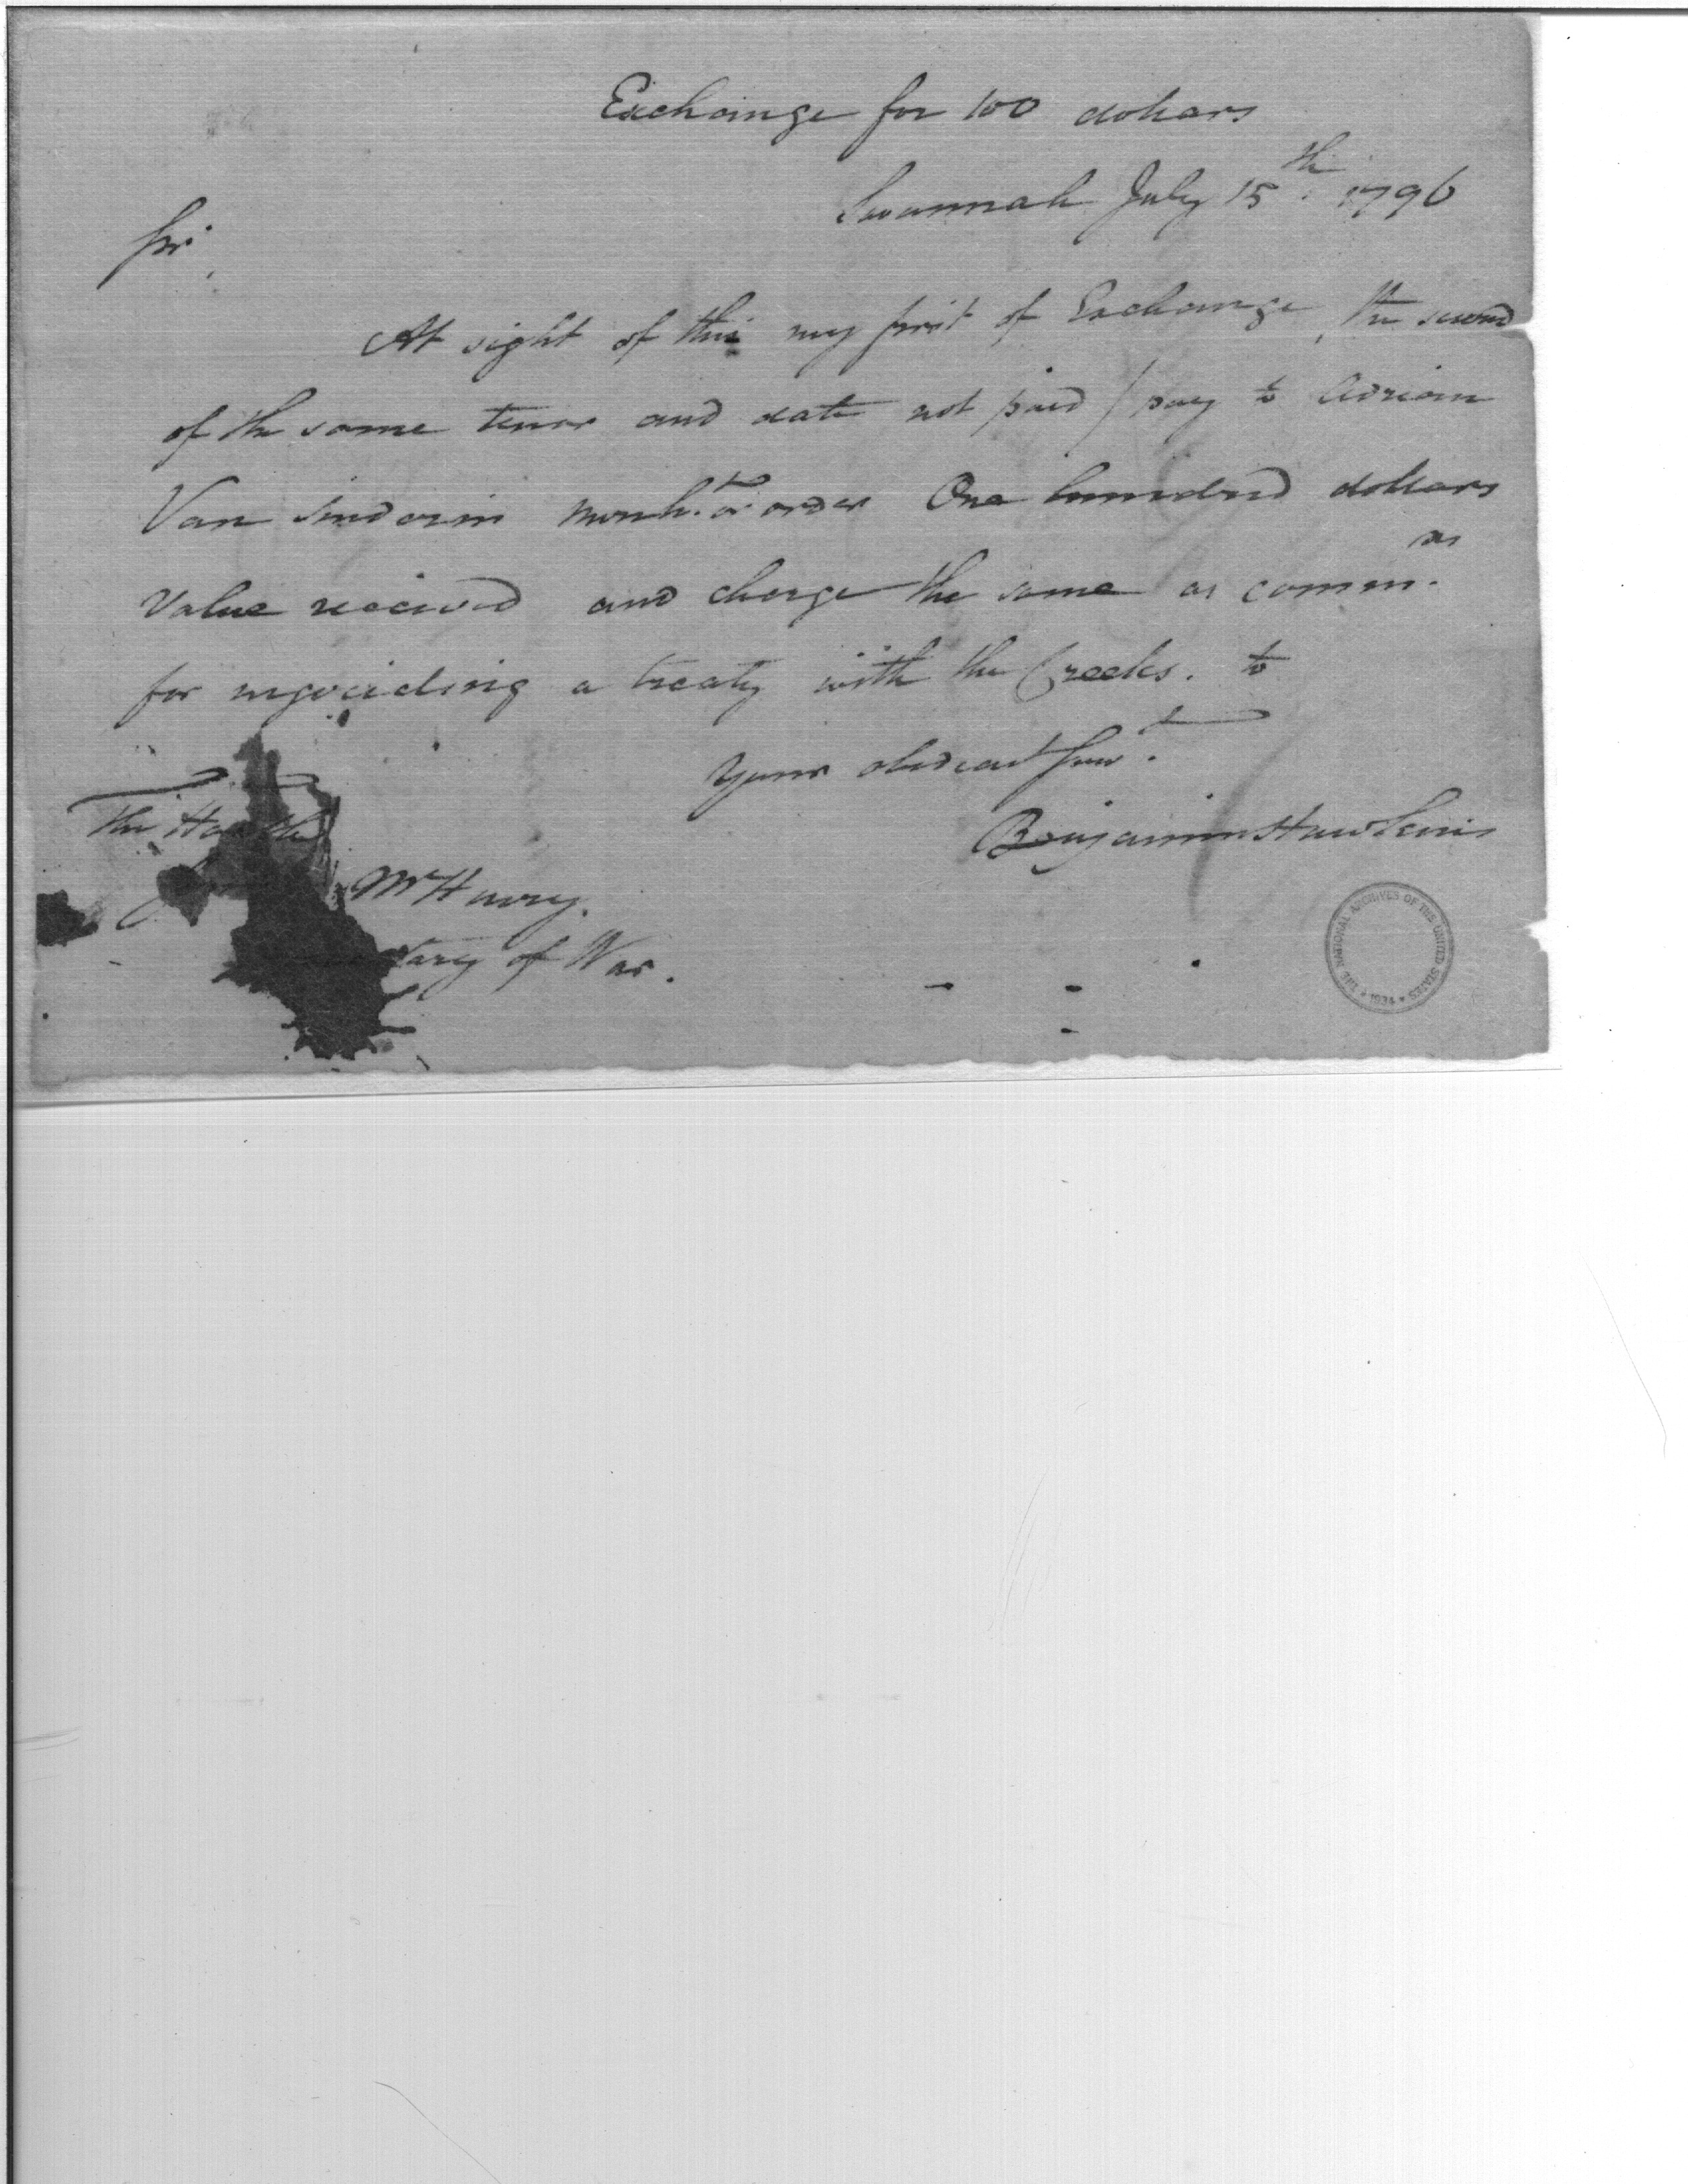 Exchange for 100 dollars
Savannah July 15th. 1796
Sir,
At sight of this my first of Exchange, the second
of the same tenor and date not paid / pay to Adrian
Van Sinderin merch.t or order One hundred dollars
Value received and charge the same as comm.rs
for negociating a treaty with the Creeks. to
Your obedient Serv.t
Benjamin Hawkins
The Hon.ble
McHenry.
tary of War.
THE NATIONAL ARCHIVES OF THE UNITED STATES * 1934 *